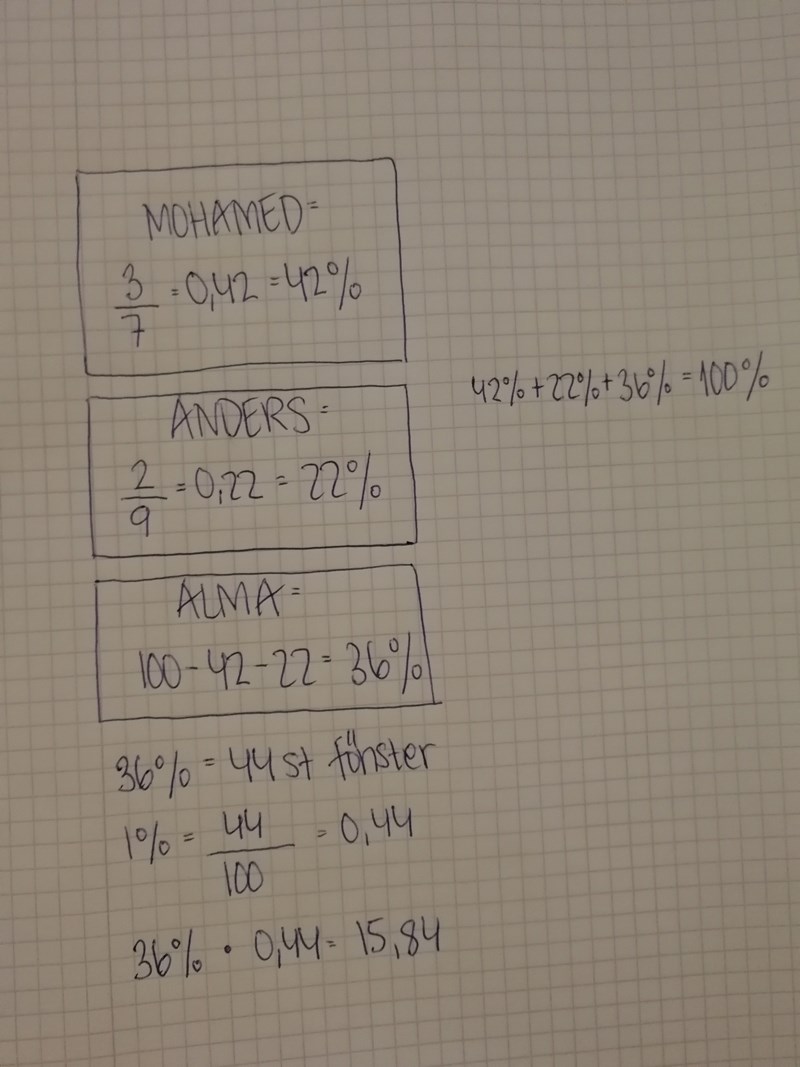 MOHAMED=
3/7 = 0,42 = 42%
42% + 22% + 36% = 100%
ANDERS=
2/9 = 0,22 = 22%
ALMA=
100-42-22 = 36%
36% = 44 st fönster
1% = 44/100 = 0,44
36% · 0,44 = 15,84